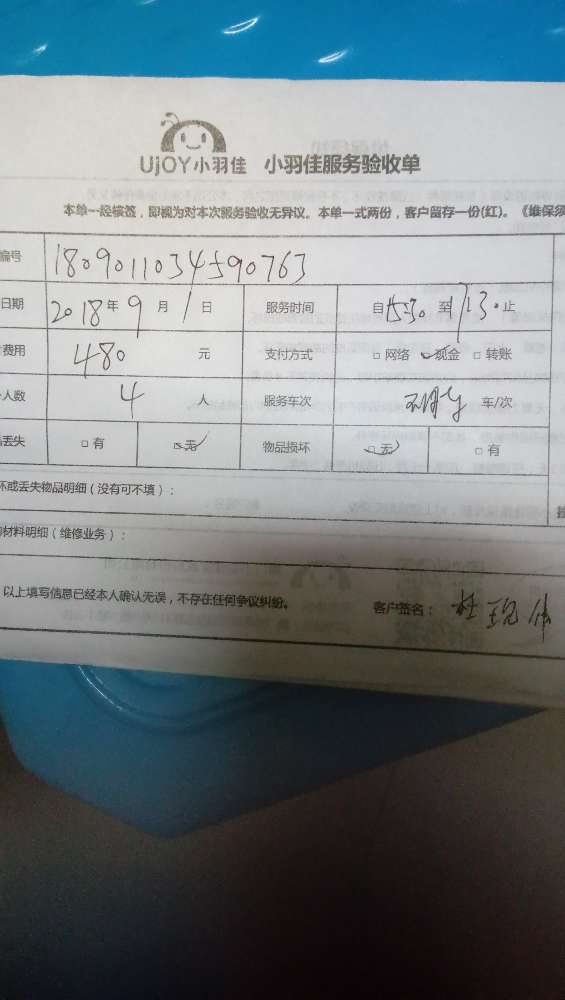 UjOY小羽佳 小羽佳服务验收单
本单一经核签，即视为对本次服务验收无异议。本单一式两份，客户留存一份(红)。《维保须
编号 1809011034590763
日期 2018年9月1日 服务时间 自15:30至17:30止
费用 480 元 支付方式 □网络 ☑现金 □转账
人数 4 人 服务车次 车/次
丢失 □有 ☑无 物品损坏 ☑无 □有
坏或丢失物品明细（没有可不填）：
材料明细（维修业务）：
以上填写信息已经本人确认无误，不存在任何争议纠纷。 客户签名：